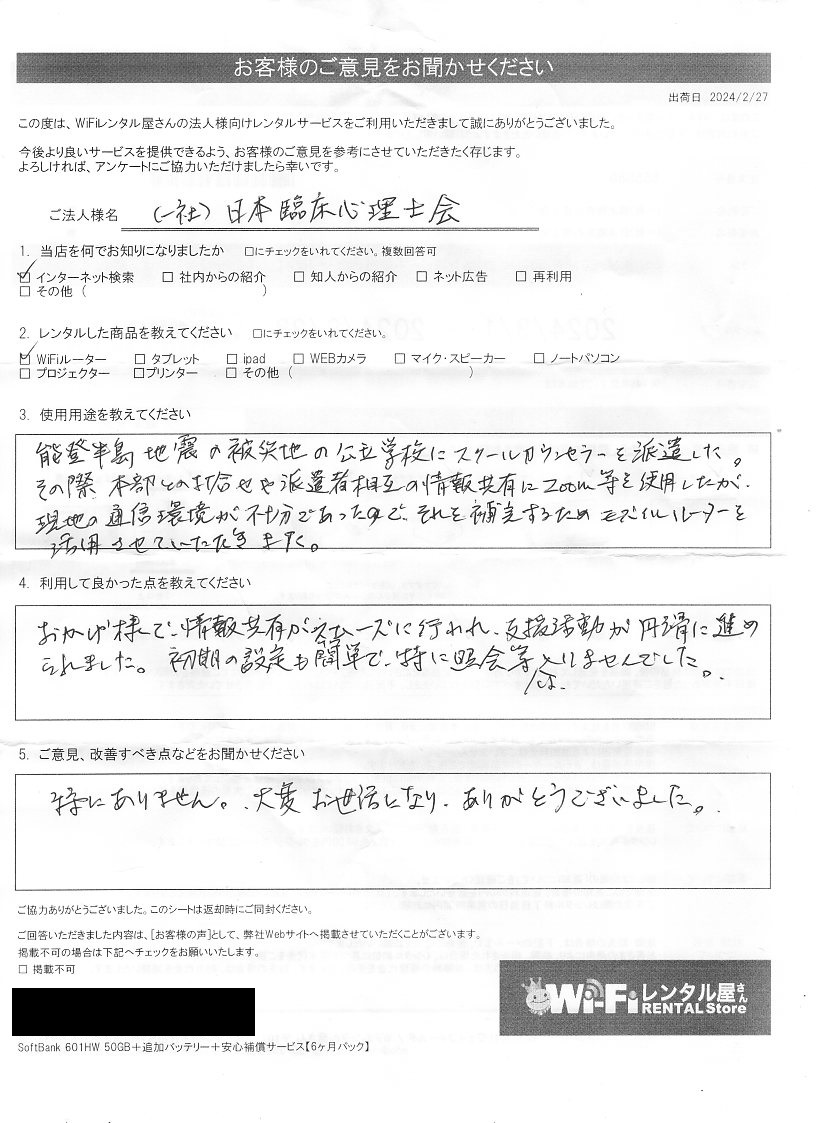 お客様のご意見をお聞かせください
出荷日 2024/2/27
この度は、WiFiレンタル屋さんの法人様向けレンタルサービスをご利用いただきまして誠にありがとうございました。
今後より良いサービスを提供できるよう、お客様のご意見を参考にさせていただきたく存じます。
よろしければ、アンケートにご協力いただけましたら幸いです。
ご法人様名 (一社)日本臨床心理士会
1. 当店を何でお知りになりましたか □にチェックをいれてください。複数回答可
☑ インターネット検索 □ 社内からの紹介 □ 知人からの紹介 □ ネット広告 □ 再利用
□ その他 ( )
2. レンタルした商品を教えてください □にチェックをいれてください。
☑ WiFiルーター □ タブレット □ ipad □ WEBカメラ □ マイク・スピーカー □ ノートパソコン
□ プロジェクター □プリンター □ その他 ( )
3. 使用用途を教えてください
能登半島地震の被災地の公立学校にスクールカウンセラーを派遣した。
その際本部との打合せや派遣者相互の情報共有にZoom等を使用したが、
現地の通信環境が不十分であったので、それを補完するためモバイルルーターを
活用させていただきました。
4. 利用して良かった点を教えてください
おかげ様で、情報共有がスムーズに行われ、支援活動が円滑に進め
られました。初期の設定も簡単で、特に照会等は入りませんでした。
5. ご意見、改善すべき点などをお聞かせください
特にありません。大変お世話になり、ありがとうございました。
ご協力ありがとうございました。このシートは返却時にご同封ください。
ご回答いただきました内容は、[お客様の声]として、弊社Webサイトへ掲載させていただくことがございます。
掲載不可の場合は下記へチェックをお願いいたします。
□ 掲載不可
Wi-Fiレンタル屋さん
RENTAL Store
SoftBank 601HW 50GB＋追加バッテリー＋安心補償サービス【6ヶ月パック】